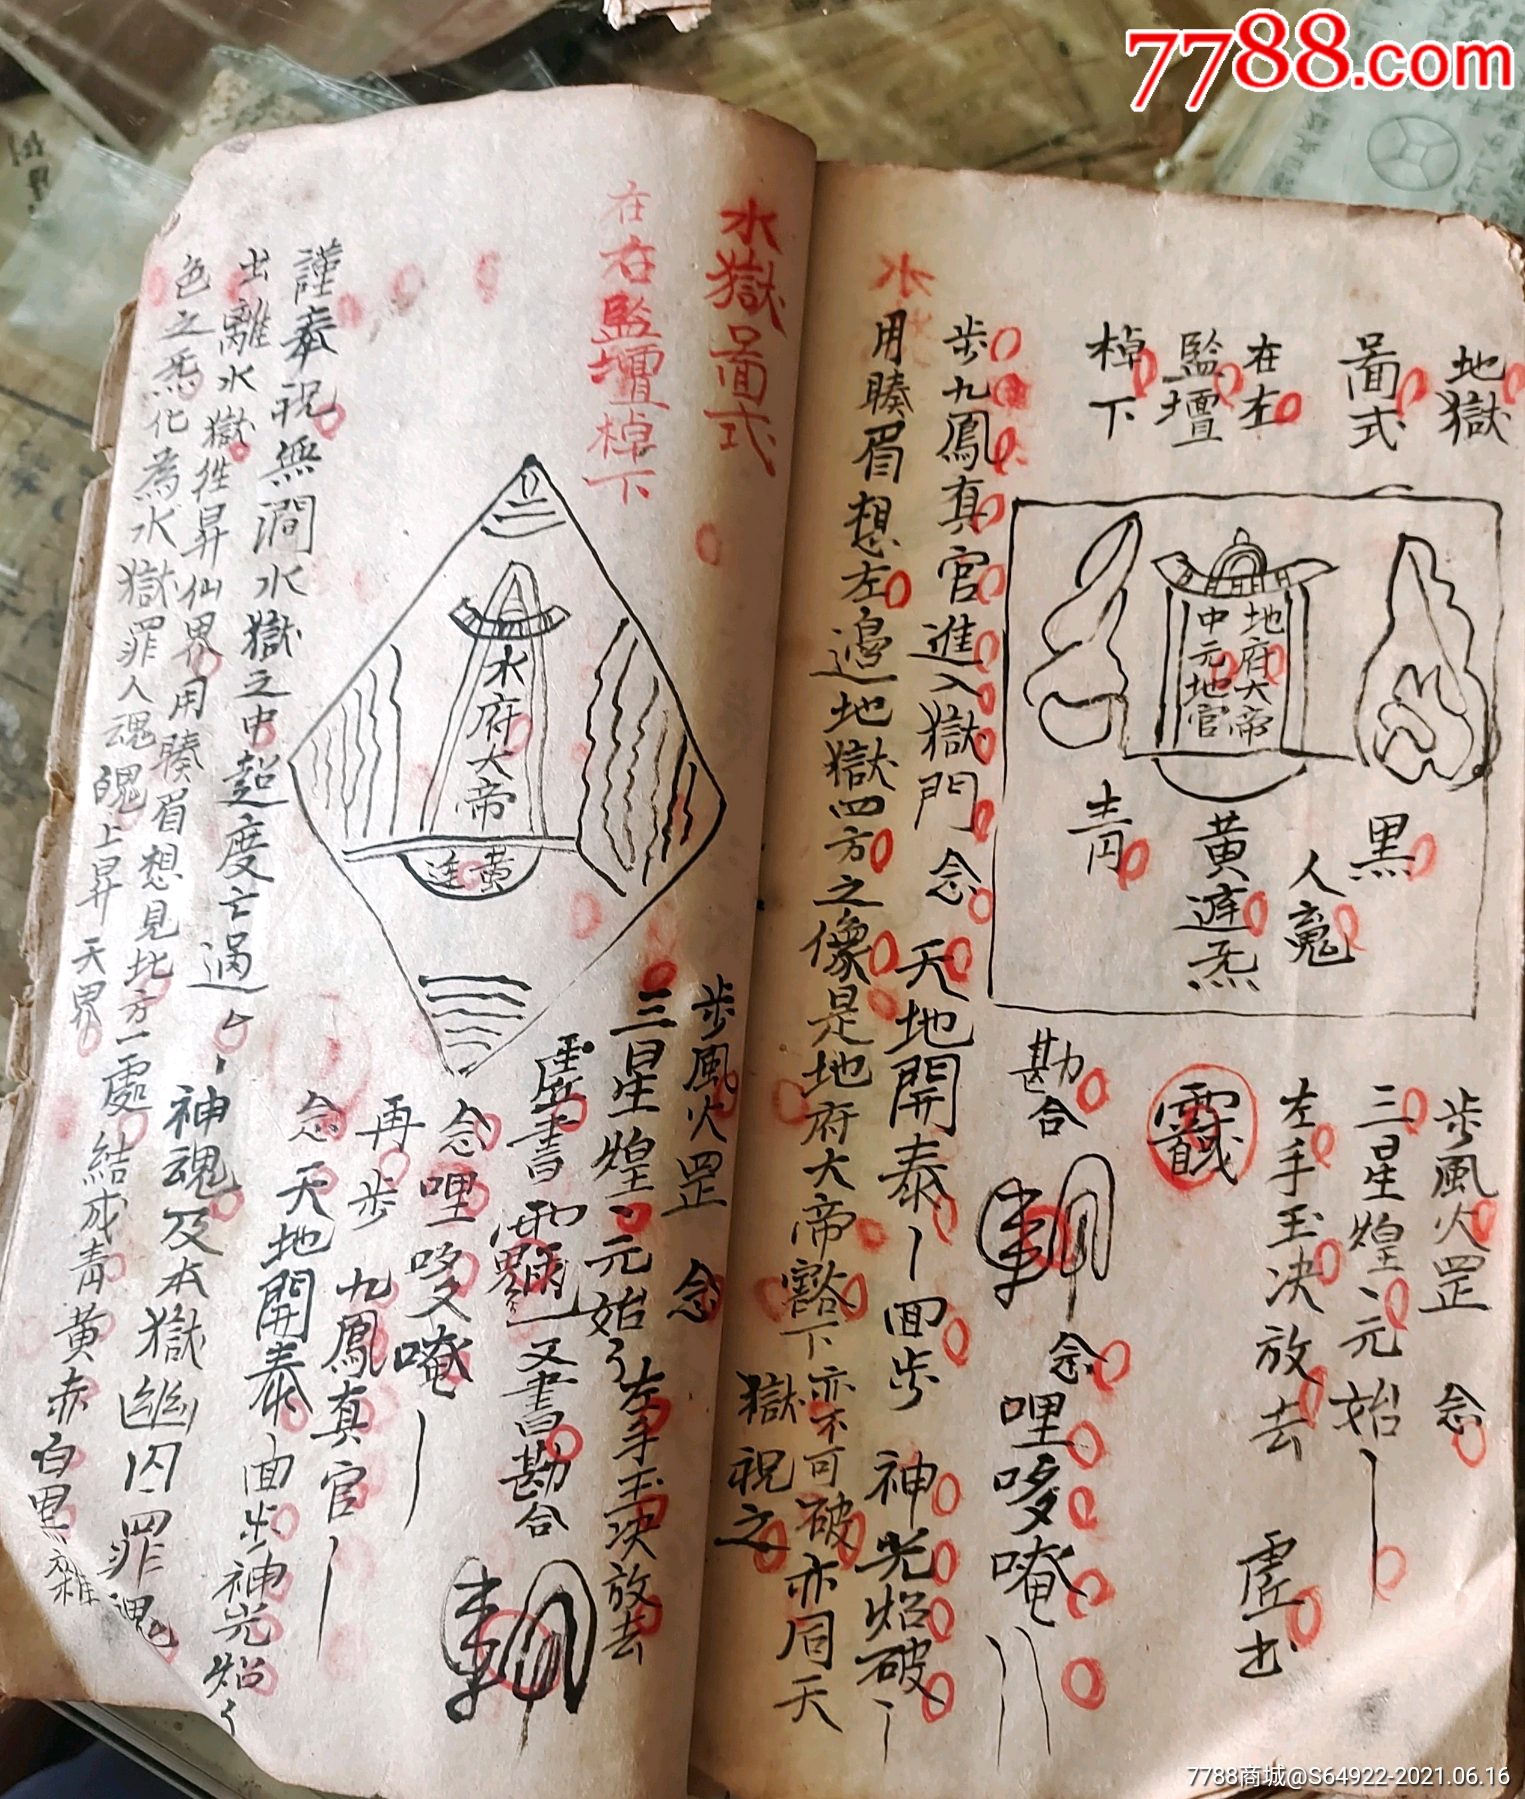 7788.com
地獄
啚式
在左
監壇
棹下
地府大帝
中元地官
黑
人鬼
黃
青
步風火罡 念
三星煌、元始
左手玉决放去 虛出
勘合
念哩哆唵
步九鳳真官進入獄門 念 天地開泰 面步 神光焰破
用睫眉想左邉地獄四方之像是地府大帝豁下亦不可破亦同天
獄祝之
水獄啚式
在右監壇棹下
水府大帝
步風火罡 念
三星煌、元始 左手玉决放去
虛書
又書勘合
念哩哆唵
再步 九鳳真官
念 天地開泰 面步 神光焰
謹奉祝無澗水獄之中超度亡過 神魂及本獄幽囚罪魂
出離水獄徃昇仙界用睫眉想見北方一處結成青黃赤白黑雜
色之炁化為水獄罪人魂魄上昇天界
7788商城@S64922-2021.06.16